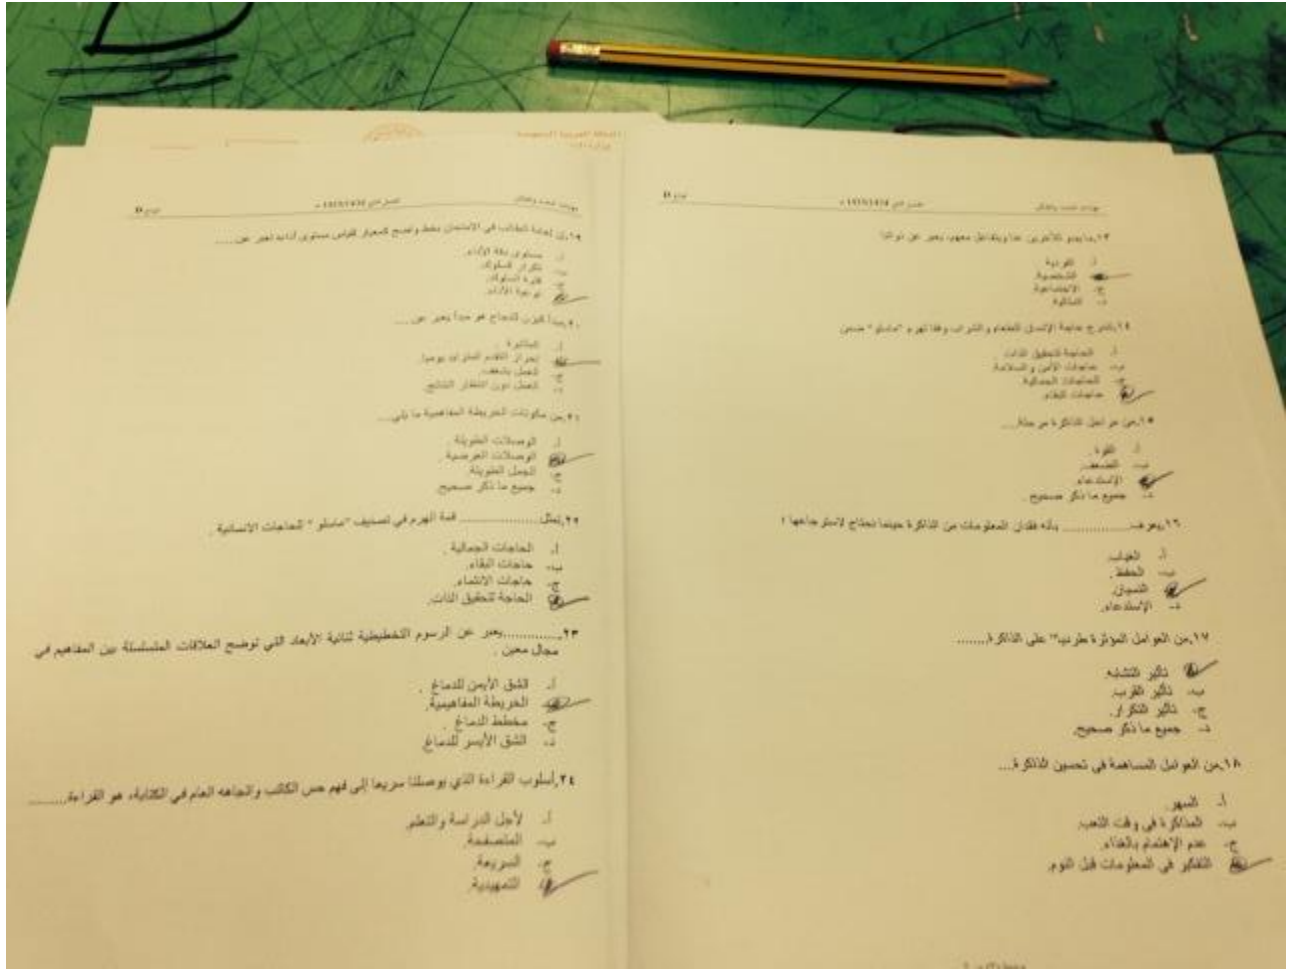 ١٣.ما يبدو للآخرين عنا ويتفاعل معهم، يعبر عن ذواتنا
أ. الفردية
ب- الشخصية.
ج- الاجتماعية
د- الذاكرة
١٤.تندرج حاجة الإنسان للطعام و الشراب وفقا لهرم "ماسلو" ضمن
أ. الحاجة لتحقيق الذات .
ب- حاجات الأمن و السلامة.
ج- الحاجات الجمالية.
حاجات البقاء.
١٥.من مراحل الذاكرة مرحلة.....
أ. القوة.
ب- الضعف.
الإستدعاء.
د- جميع ما ذكر صحيح .
١٦.يعرف................ بأنه فقدان المعلومات من الذاكرة حينما نحتاج لاسترجاعها ؛
أ. الغياب.
ب- الحفظ .
النسيان.
د- الإستدعاء.
١٧.من العوامل المؤثرة طرديا" على الذاكرة.......
تأثير التشابه.
ب- تأثير القرب.
ج- تأثير التكرار.
د- جميع ما ذكر صحيح.
١٨.من العوامل المساهمة في تحسين الذاكرة....
أ. السهر.
ب- المذاكرة في وقت التعب.
ج- عدم الإهتمام بالغذاء.
التفكير في المعلومات قبل النوم.
١٩.إن إجابة الطالب في الامتحان بخط واضح كمعيار لقياس مستوى أدائه تعبر عن.....
أ. مستوى دقة الأداء.
ب- تكرار السلوك.
ج- فترة السلوك.
نوعية الأداء.
٢٠.مبدأ كيزن للنجاح هو مبدأ يعبر عن....
أ. المثابرة .
إحراز التقدم المتزايد يوميا.
ج- العمل بشغف.
د- العمل دون انتظار النتائج.
٢١.من مكونات الخريطة المفاهيمية ما يلي....
أ. الوصلات الطويلة .
الوصلات العرضية .
ج- الجمل الطويلة.
د- جميع ما ذكر صحيح.
٢٢.تمثل.................. قمة الهرم في تصنيف "ماسلو " للحاجات الانسانية .
أ. الحاجات الجمالية .
ب- حاجات البقاء.
ج- حاجات الانتماء.
الحاجة لتحقيق الذات.
٢٣..............يعبر عن الرسوم التخطيطية ثنائية الأبعاد التي توضح العلاقات المتسلسلة بين المفاهيم في
مجال معين .
أ. الشق الأيمن للدماغ .
الخريطة المفاهيمية.
ج- مخطط الدماغ .
د- الشق الأيسر للدماغ
٢٤.أسلوب القراءة الذي يوصلنا سريعا إلى فهم حس الكاتب واتجاهه العام في الكتابة، هو القراءة.........
أ. لأجل الدراسة والتعلم.
ب- المتصفحة.
ج- السريعة.
التمهيدية.